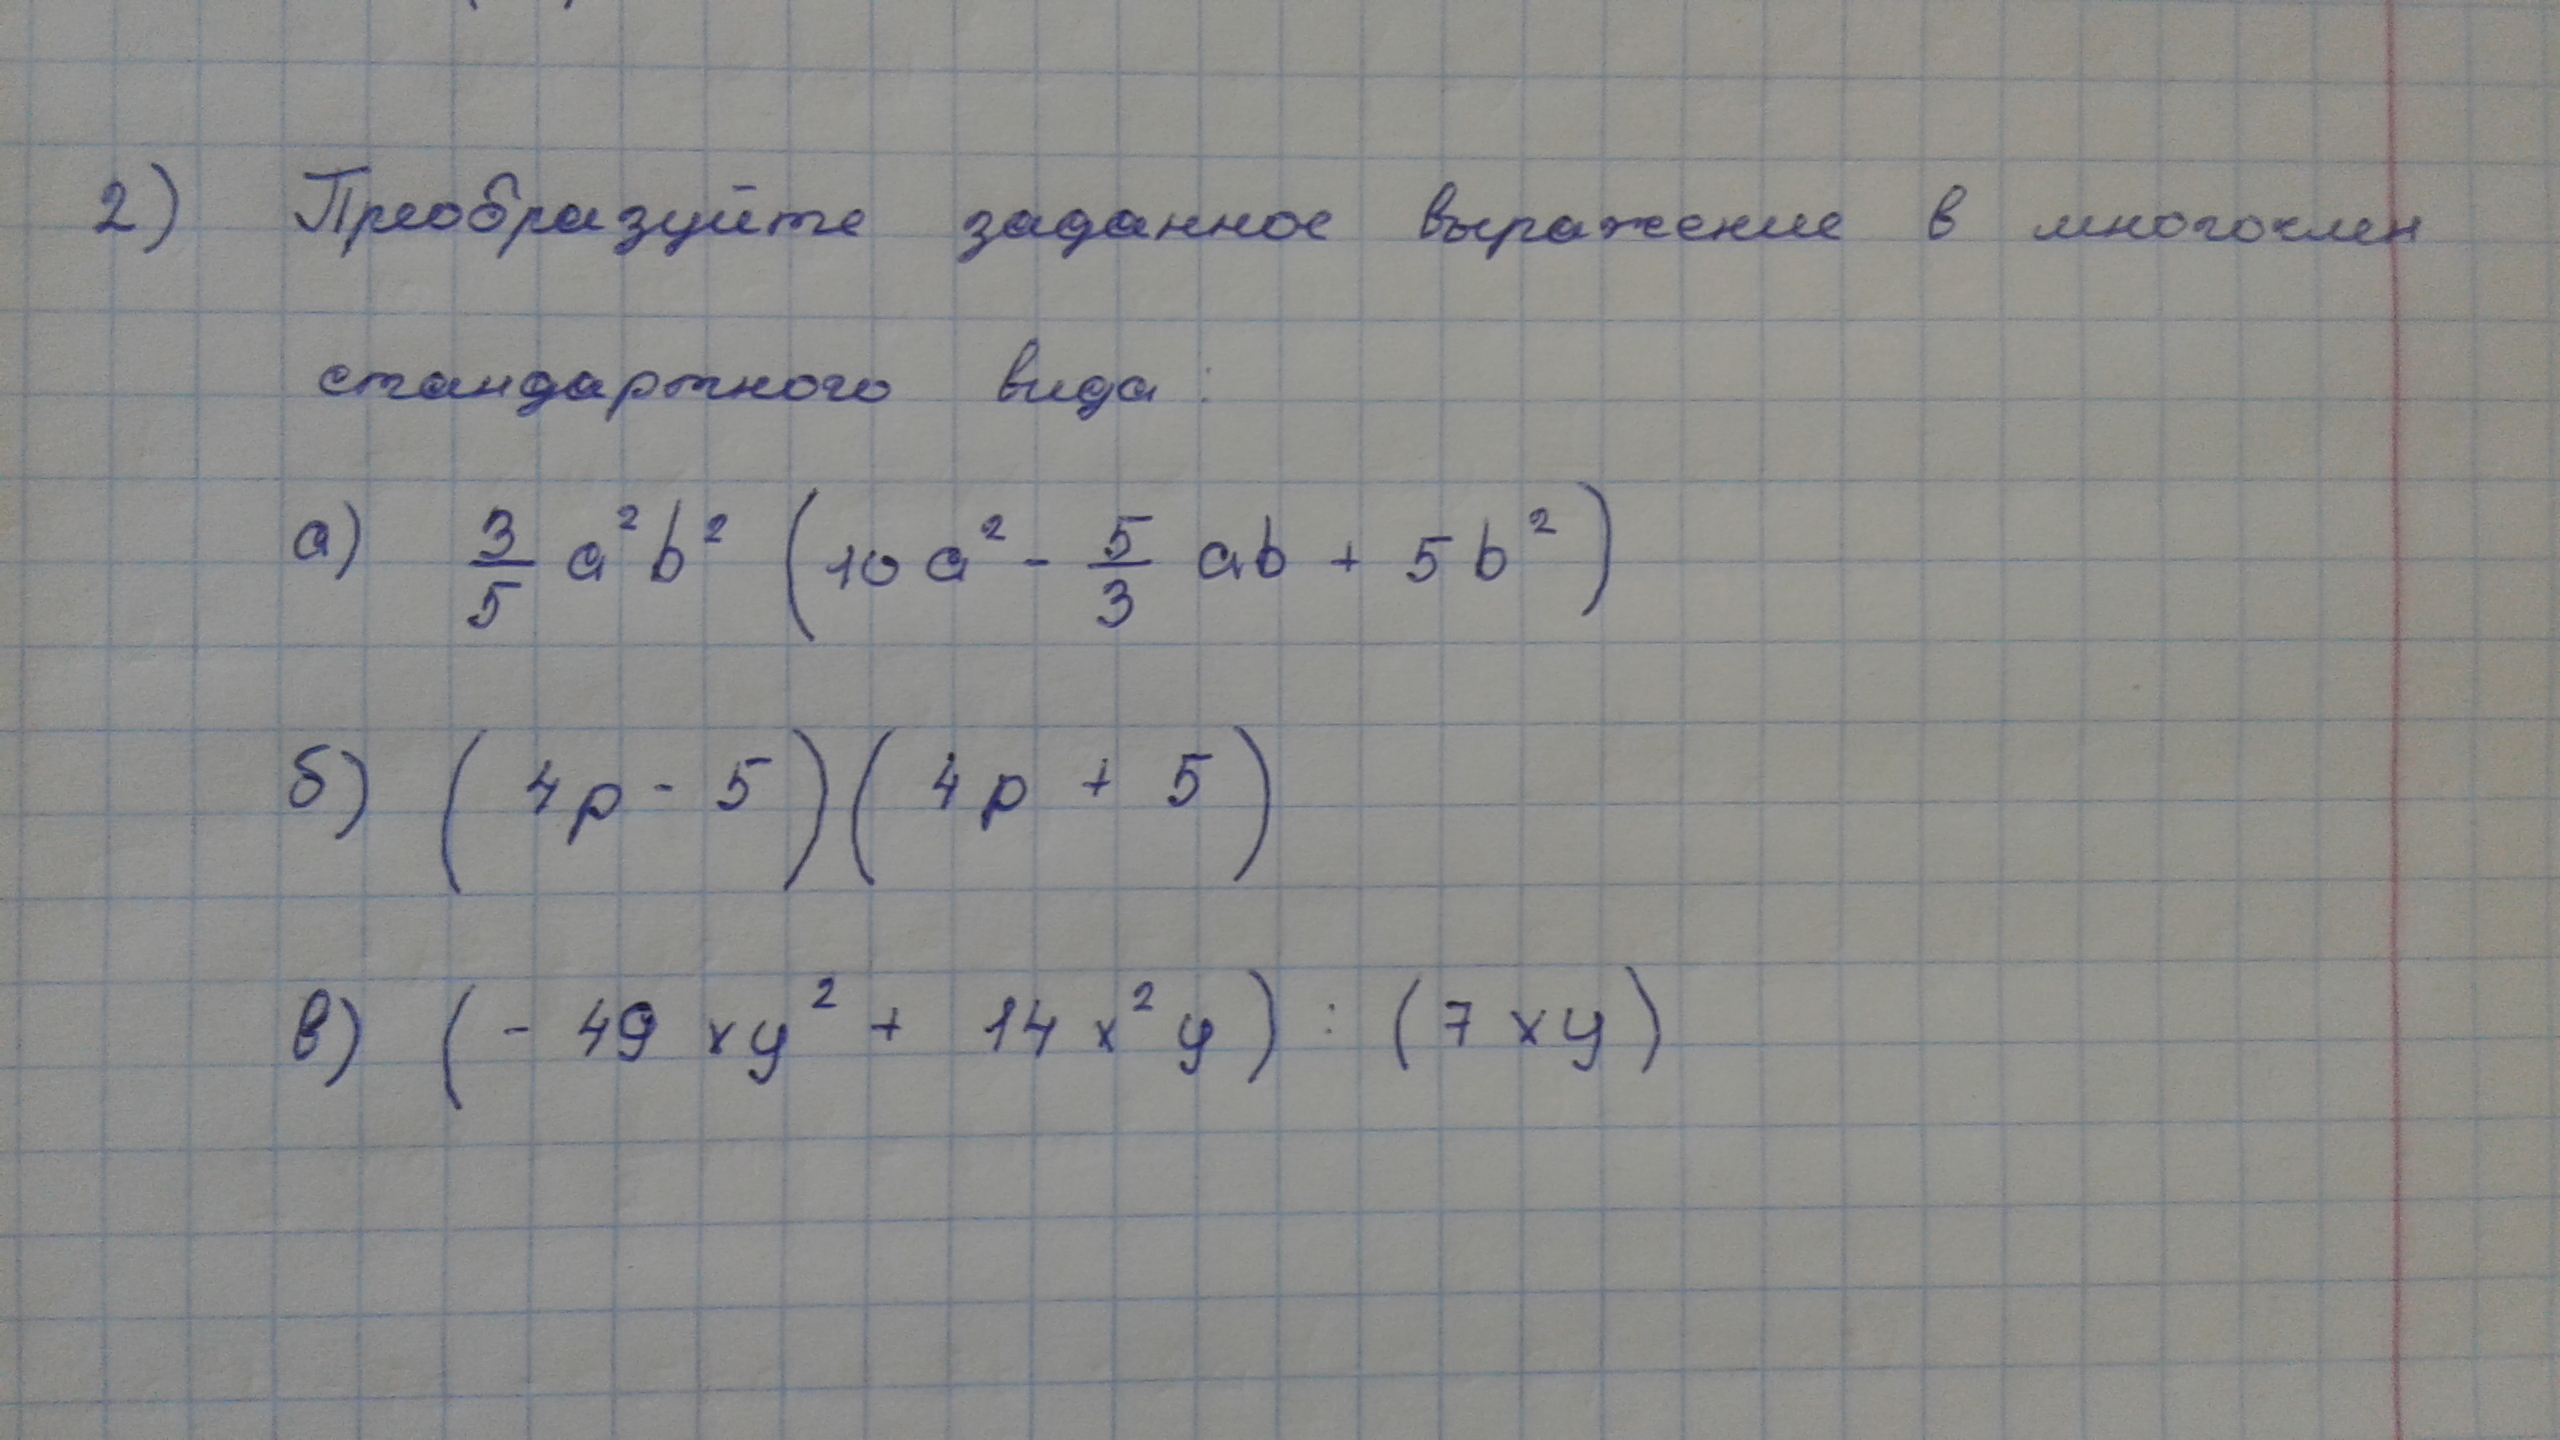 2) Преобразуйте заданное выражение в многочлен
стандартного вида:
а) 3/5 a²b² (10a² - 5/3 ab + 5b²)
б) (4p - 5)(4p + 5)
в) (- 49 xy² + 14 x²y) : (7 xy)